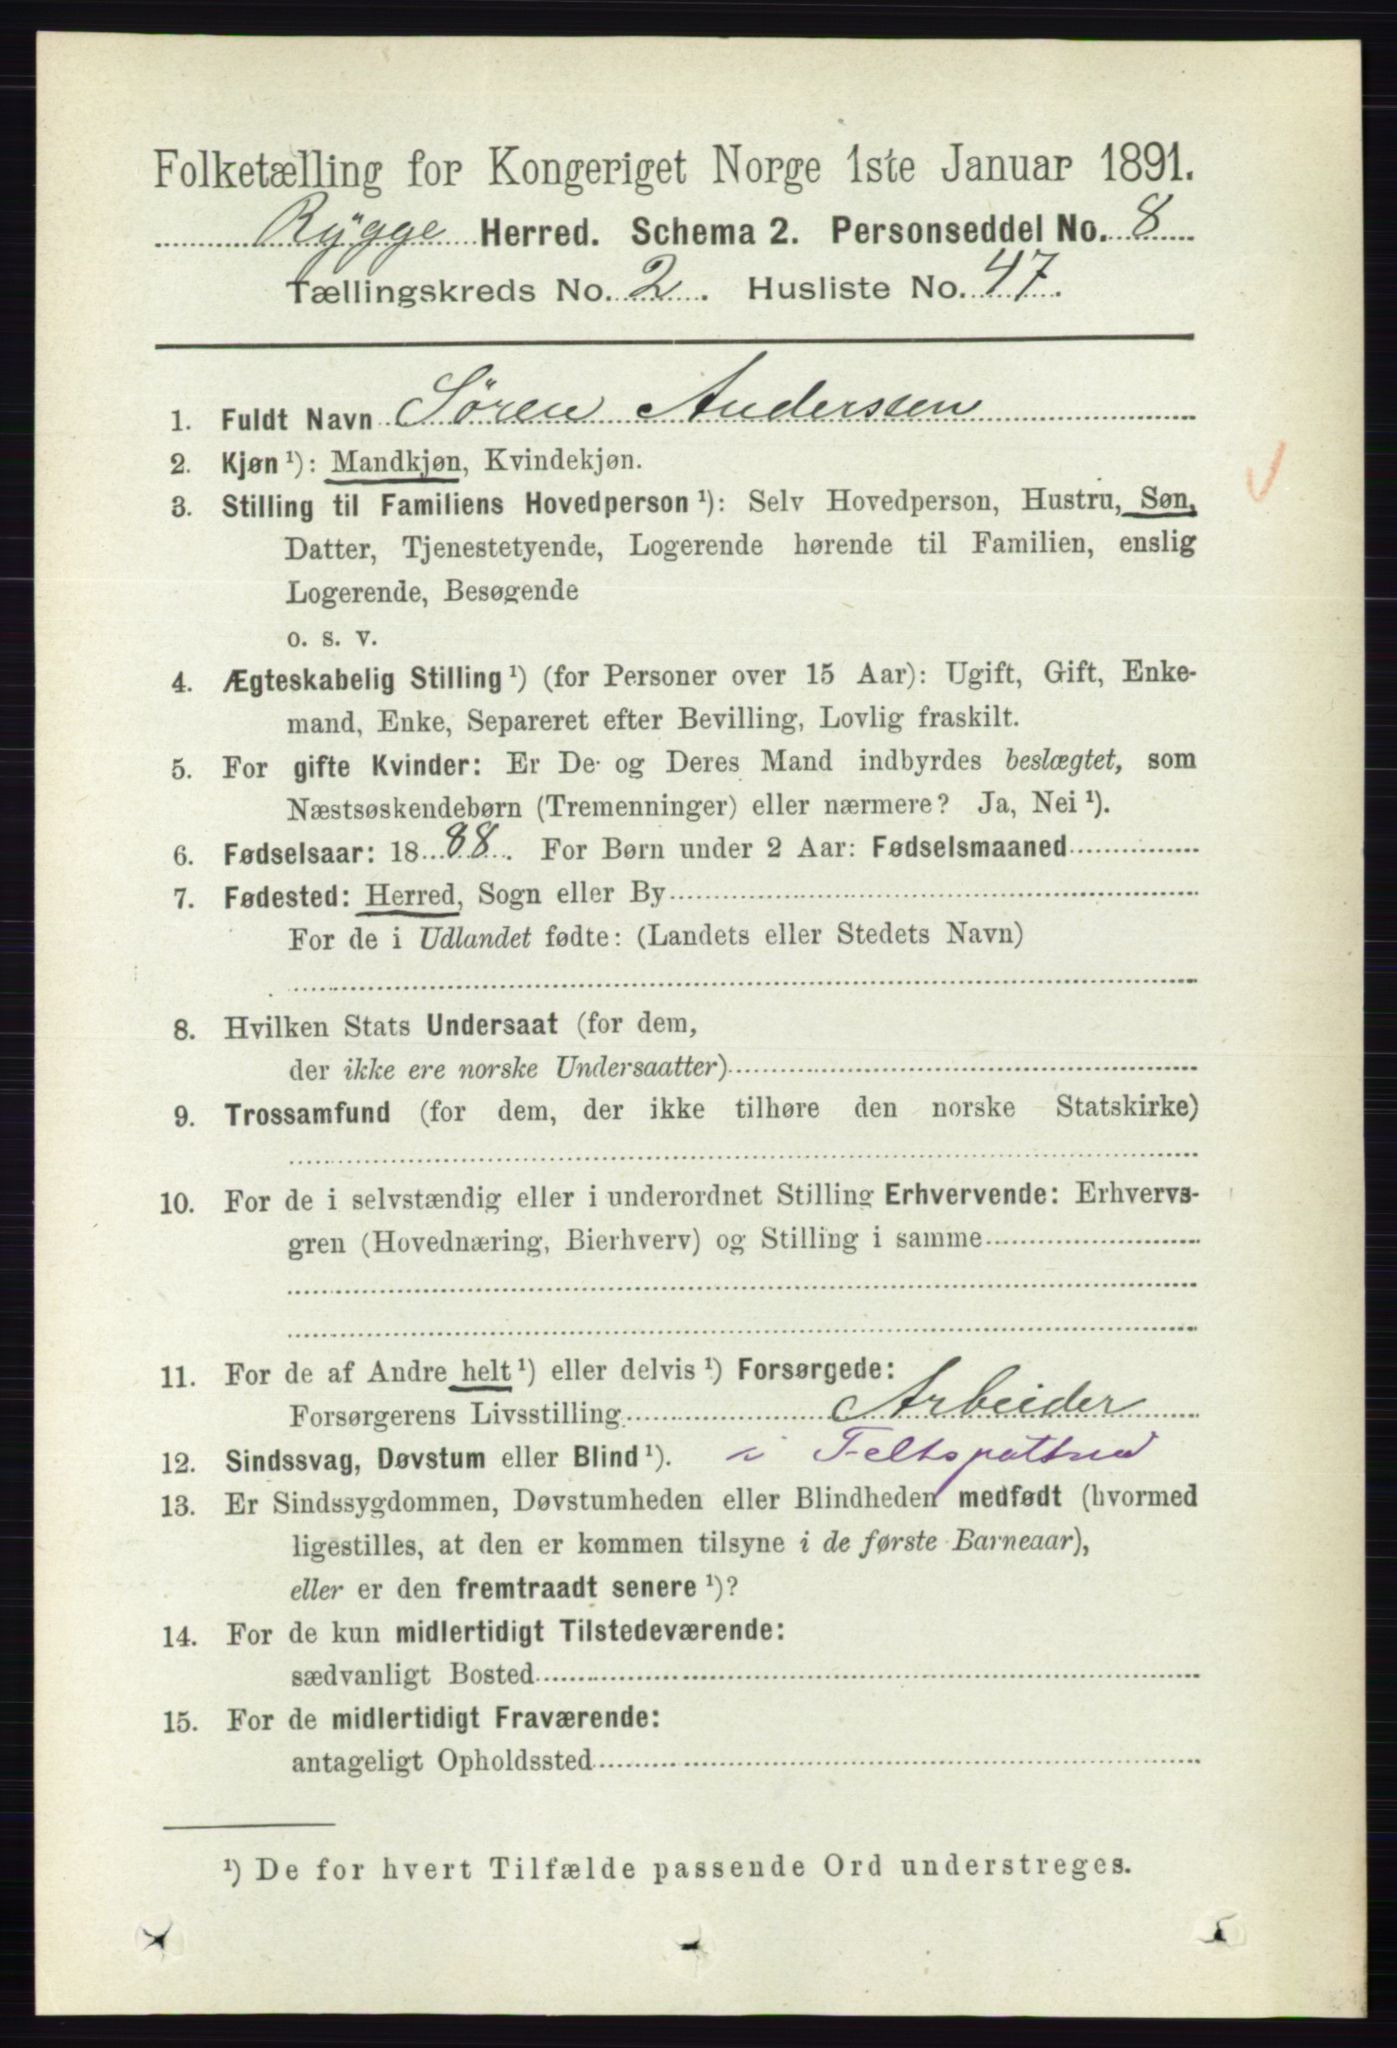 Folketælling for Kongeriget Norge 1ste Januar 1891.
Rygge Herred. Schema 2. Personseddel No. 8
Tællingskreds No. 2. Husliste No. 47.
1. Fuldt Navn Søren Anderssen
2. Kjøn ¹): Mandkjøn, Kvindekjøn.
3. Stilling til Familiens Hovedperson ¹): Selv Hovedperson, Hustru, Søn,
Datter, Tjenestetyende, Logerende hørende til Familien, enslig
Logerende, Besøgende
o. s. v.
4. Ægteskabelig Stilling ¹) (for Personer over 15 Aar): Ugift, Gift, Enke-
mand, Enke, Separeret efter Bevilling, Lovlig fraskilt.
5. For gifte Kvinder: Er De og Deres Mand indbyrdes beslægtet, som
Næstsøskendebørn (Tremenninger) eller nærmere? Ja, Nei ¹).
6. Fødselsaar: 1888. For Børn under 2 Aar: Fødselsmaaned
7. Fødested: Herred, Sogn eller By
For de i Udlandet fødte: (Landets eller Stedets Navn)
8. Hvilken Stats Undersaat (for dem,
der ikke ere norske Undersaatter)
9. Trossamfund (for dem, der ikke tilhøre den norske Statskirke)
10. For de i selvstændig eller i underordnet Stilling Erhvervende: Erhvervs-
gren (Hovednæring, Bierhverv) og Stilling i samme
11. For de af Andre helt ¹) eller delvis ¹) Forsørgede:
Forsørgerens Livsstilling Arbeider
12. Sindssvag, Døvstum eller Blind ¹). i
13. Er Sindssygdommen, Døvstumheden eller Blindheden medfødt (hvormed
ligestilles, at den er kommen tilsyne i de første Barneaar),
eller er den fremtraadt senere ¹)?
14. For de kun midlertidigt Tilstedeværende:
sædvanligt Bosted
15. For de midlertidigt Fraværende:
antageligt Opholdssted
¹) De for hvert Tilfælde passende Ord understreges.